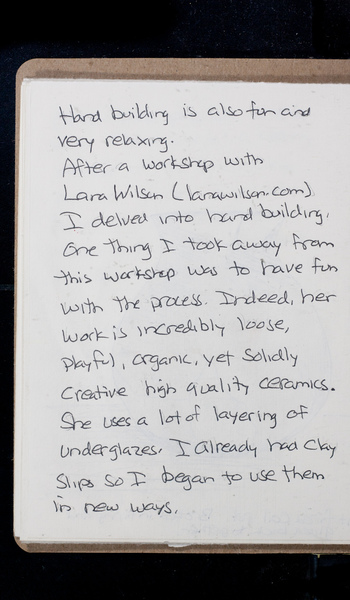 Hand building is also fun and
very relaxing.
After a workshop with
Lara Wilson (larawilson.com)
I delved into hand building.
One thing I took away from
this workshop was to have fun
with the process. Indeed, her
work is incredibly loose,
playful, organic, yet solidly
creative high quality ceramics.
She uses a lot of layering of
underglazes. I already had clay
slips so I began to use them
in new ways.